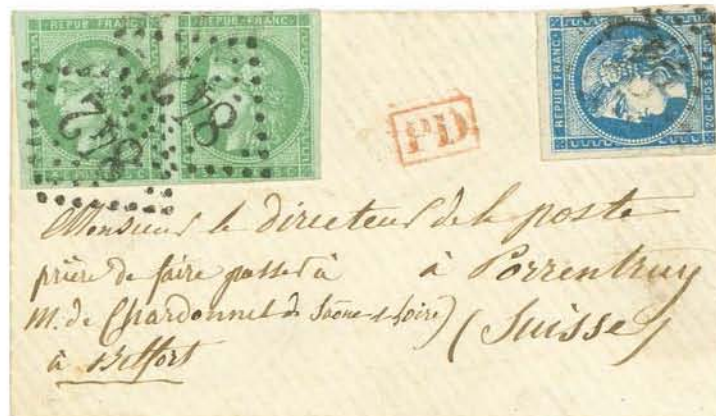 REPUB · FRANC · REPUB · FRANC ·
842 842
5 C 5 C
REPUB · FRANC ·
20 C · POSTE
PD
Monsieur le directeur de la poste
prière de faire passer à à Porrentruy
M. de Chardonnet de Saône & Loire) (Suisse)
à Belfort